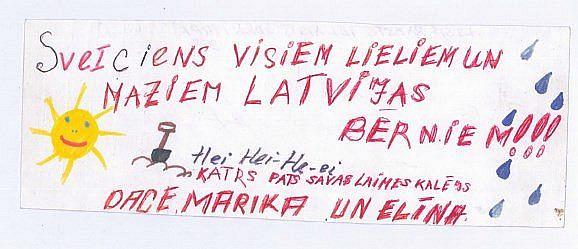 SVEICIENS VISIEM LIELIEM UN
MAZIEM LATVIJAS
BĒRNIEM!!!
Hei Hei-He-ei
KATRS PATS SAVAS LAIMES KALĒJS
DACE, MARIKA UN ELĪNA